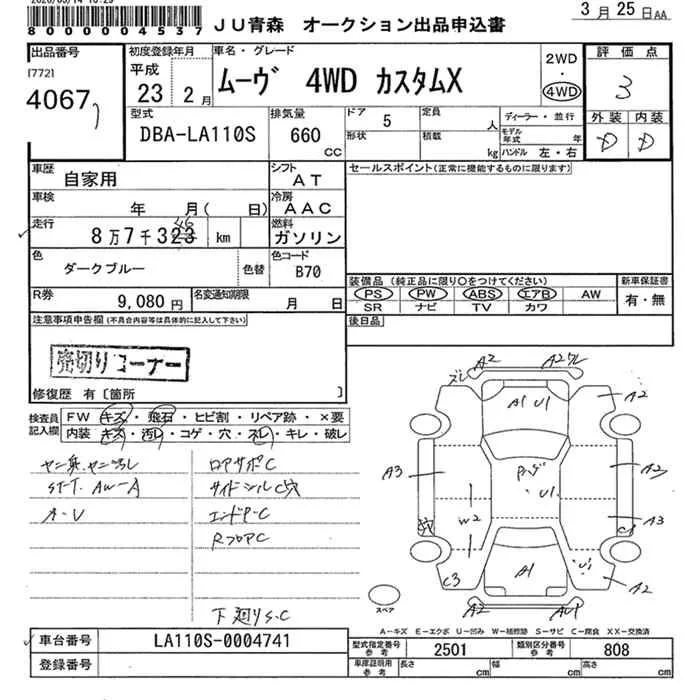 80000004537 JU青森 オークション出品申込書 3月25日AA
出品番号 初度登録年月 車名・グレード 2WD・4WD 評価点
[772] 4067
平成23年2月 ムーヴ 4WD カスタムX 3
型式 DBA-LA110S 排気量 660 CC ドア 5 定員 人 ディーラー・並行
形状 積載 kg モデル年式 年 ハンドル 左・右
外装 内装
D D
車歴 自家用 シフト AT セールスポイント(正常に機能するものに限ります)
車検 年 月( 日) 冷房 AAC
走行 8万7千323 km 燃料 ガソリン
46
色 ダークブルー 色替 色コード B70
R券 9,080円 名変通知期限 月 日
装備品(純正品に限り○をつけてください) 新車保証書
PS PW ABS エアB AW 有・無
SR ナビ TV カワ
後日品
注意事項申告欄(不具合内容等は具体的に記入して下さい)
売切りコーナー
修復歴 有〔箇所 〕
検査員記入欄 FW キズ・飛石・ヒビ割・リペア跡・×要
内装 キズ・汚レ・コゲ・穴・スレ・キレ・破レ
ロアサポC
ST-T. AW-A サイドシルC穴
A-V エンドP-C
RフロアC
下廻りS.C
ズレ A2 A2ワレ
A1 U1 A2
A3 U1 A2
W2 A3
C3 A1 U1 A2
A2 AU1
スペア
A-キズ E-エクボ U-凹み W-補修跡 S-サビ C-腐食 XX-交換済
車台番号 LA110S-0004741 型式指定番号 参考 2501 類別区分番号 参考 808
登録番号 車庫証明用 参考 長さ cm 幅 cm 高さ cm